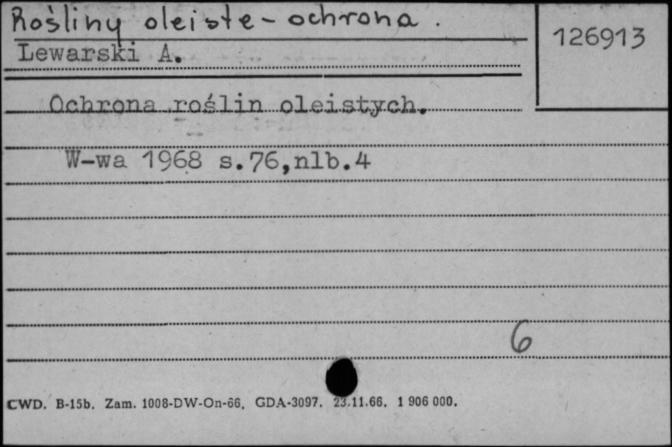 Rośliny oleiste - ochrona.
126913
Lewarski A.
Ochrona roślin oleistych.
W-wa 1968 s.76,nlb.4
6
CWD. B-15b. Zam. 1008-DW-On-66. GDA-3097. 23.11.66. 1 906 000.